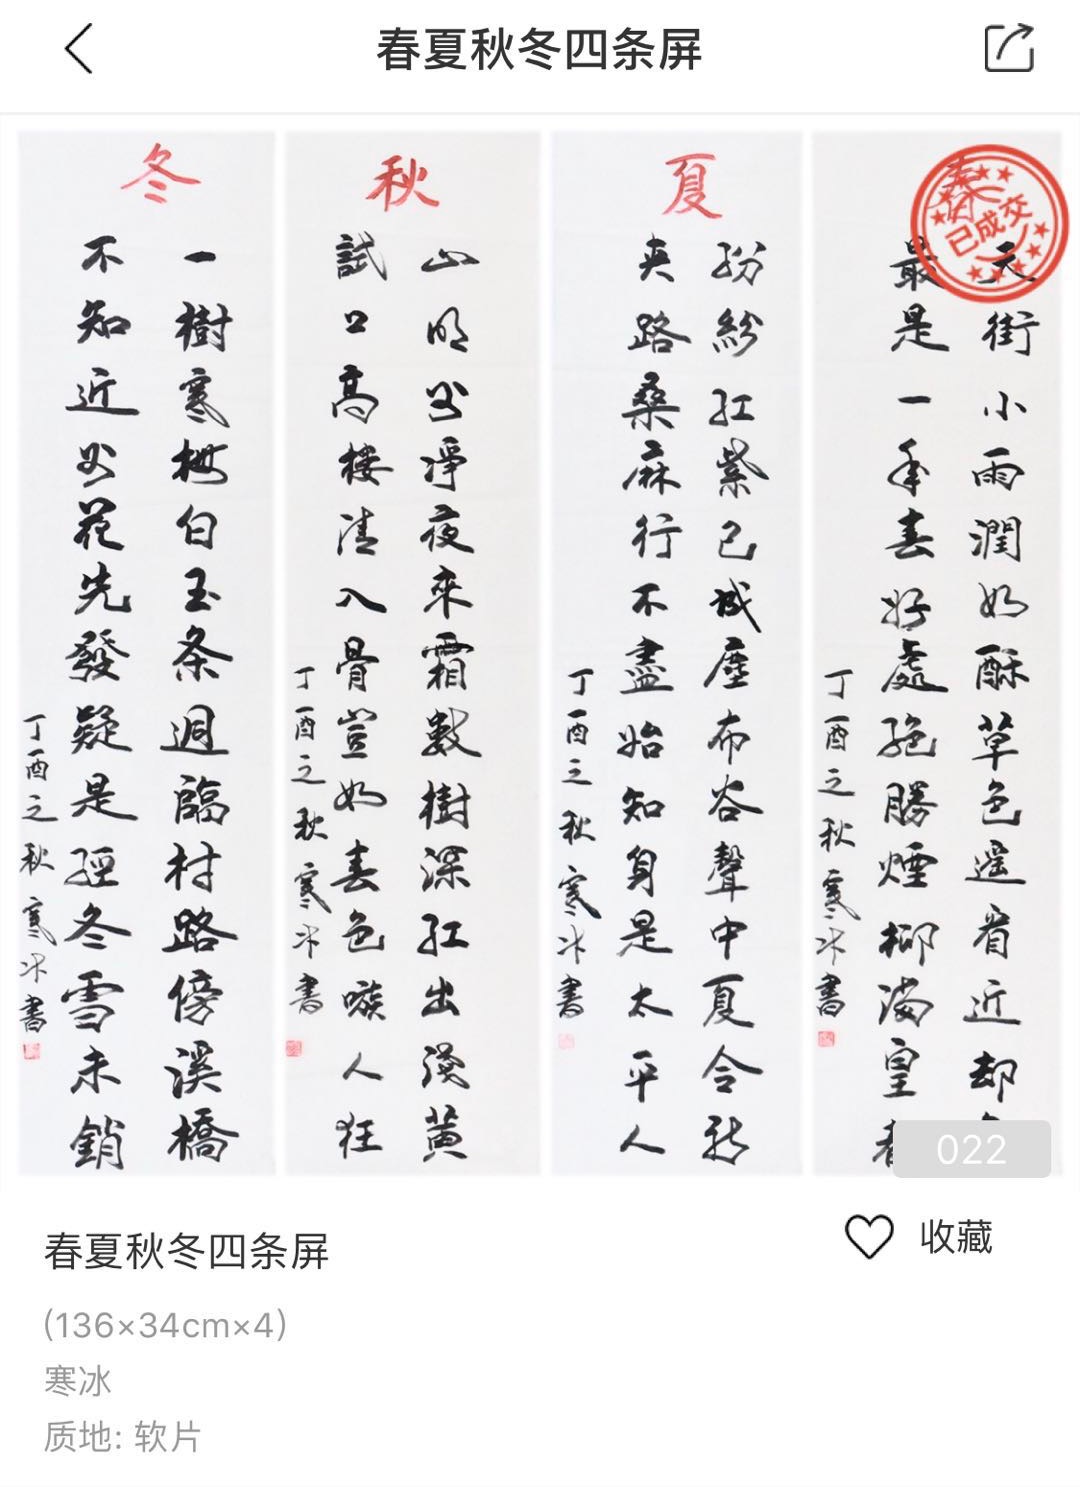 春夏秋冬四条屏
春
已成交
天街小雨潤如酥草色遥看近却
最是一年春好處絶勝煙柳满皇
丁酉之秋寒冰書
夏
紛紛紅紫已成塵布谷聲中夏令新
夹路桑麻行不盡始知身是太平人
丁酉之秋寒冰書
秋
山明水净夜來霜數樹深紅出淺黄
試上高樓清入骨豈如春色嗾人狂
丁酉之秋寒冰書
冬
一樹寒梅白玉条迥臨村路傍溪橋
不知近水花先發疑是經冬雪未銷
丁酉之秋寒冰書
022
春夏秋冬四条屏
收藏
(136×34cm×4)
寒冰
质地: 软片